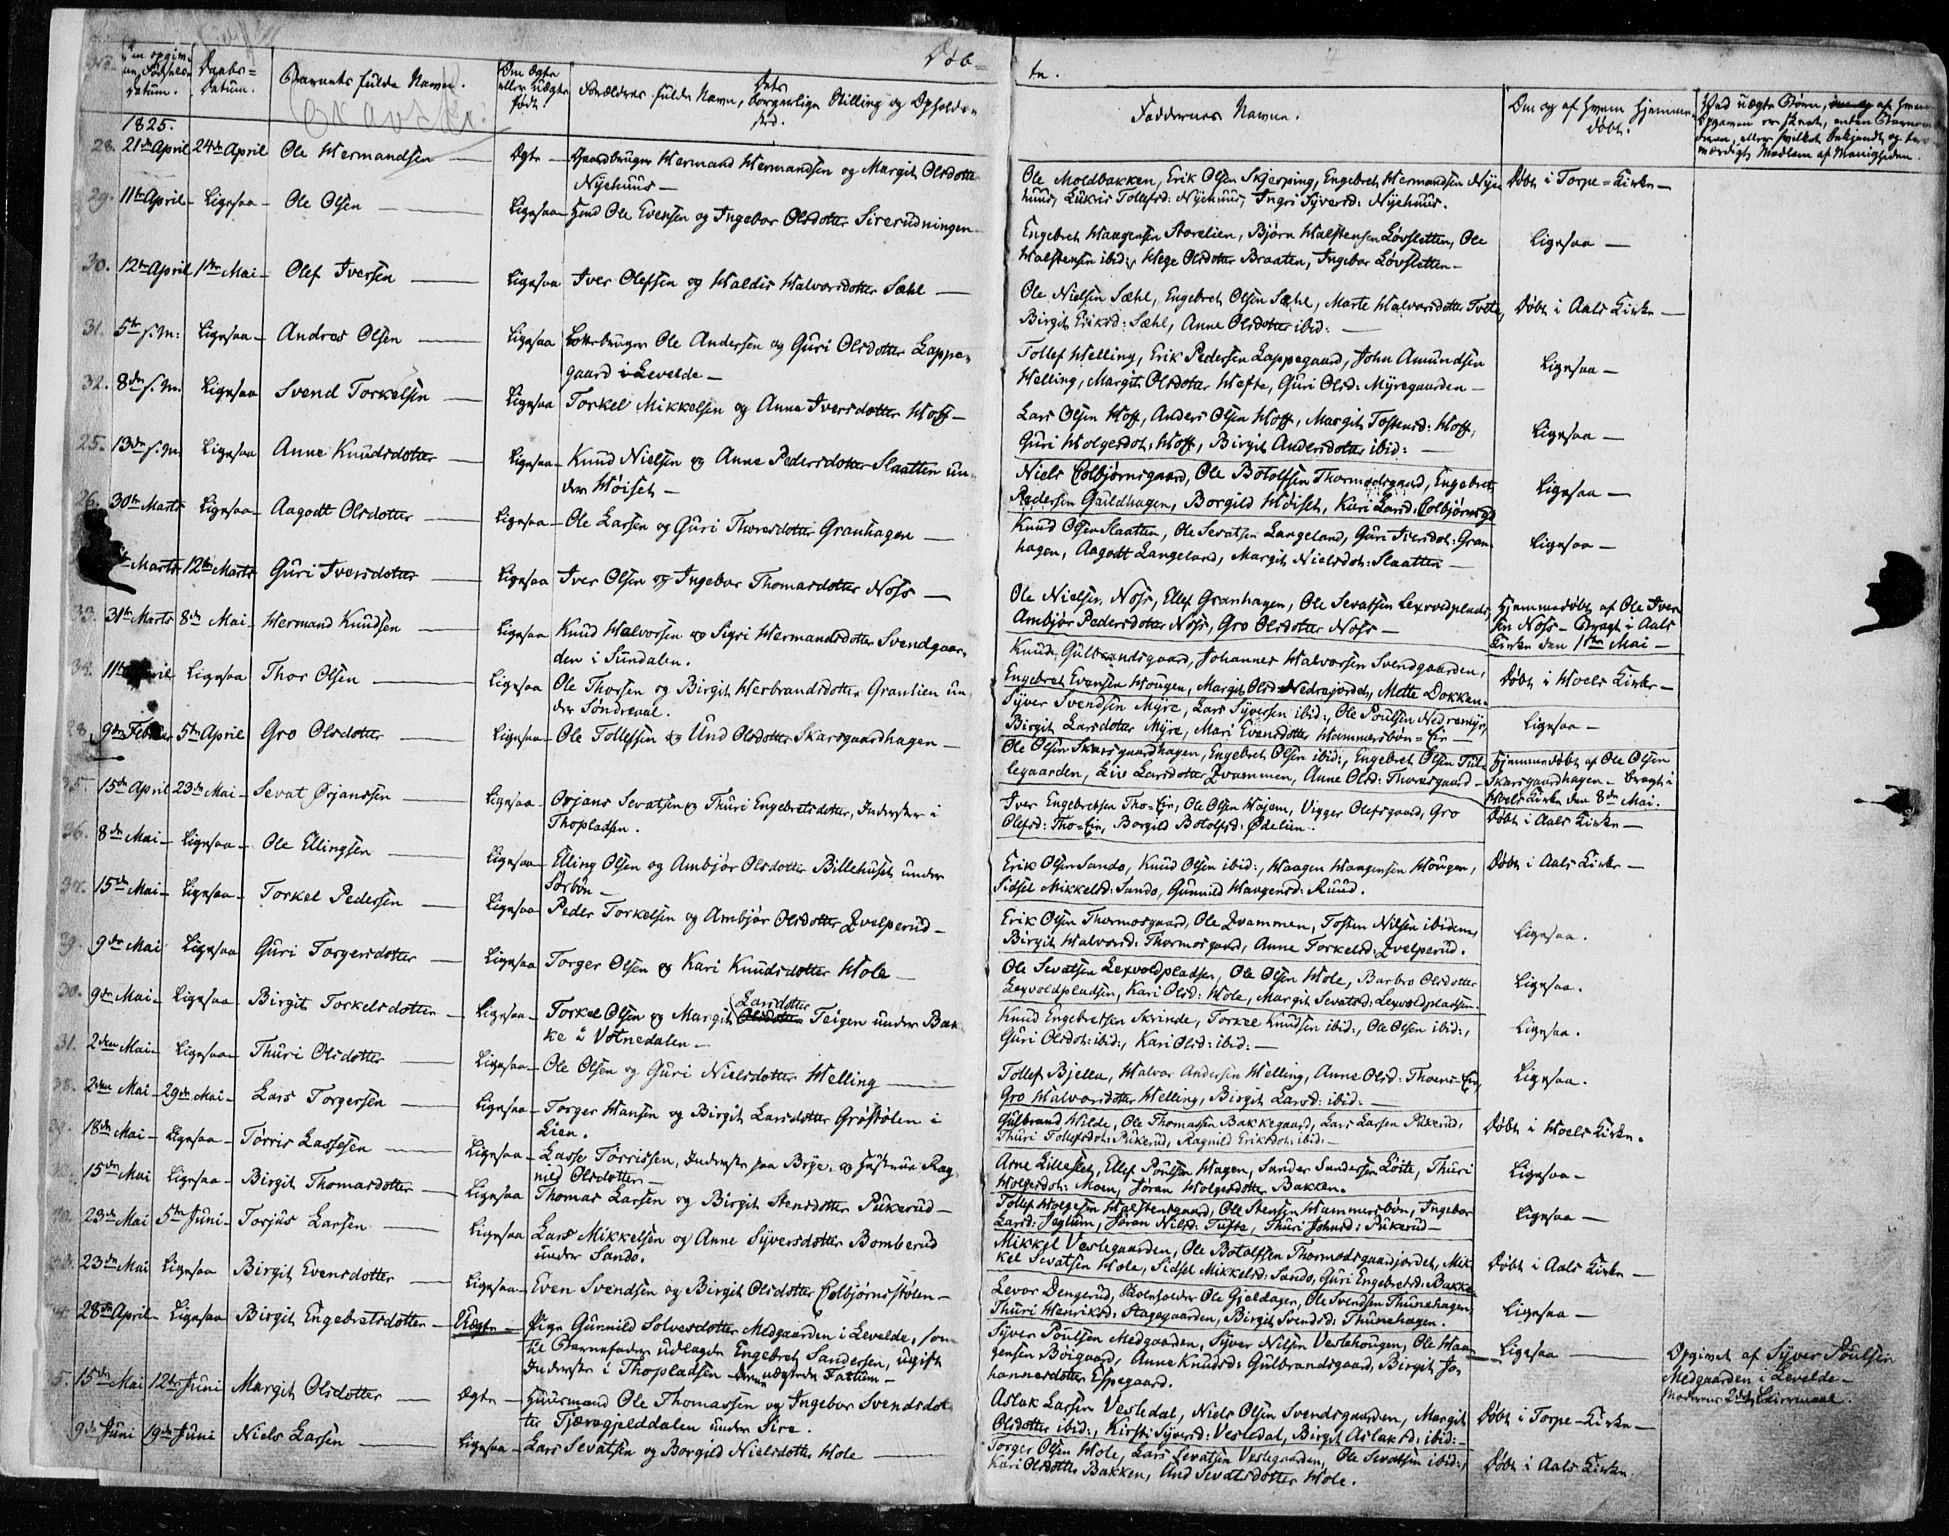 Døb=
te.
No.
Den opgivne Fødsels-Datum.
Daabs=Datum.
Barnets fulde Navn.
Om ægte eller uægte født.
Forældres fulde Navn, Dets borgerlige Stilling og Opholdssted.
Faddernes Navne.
Om og af hvem hjemmedøbt.
1825.
28. 21de April 24de April Ole Hermandsen Ægte Gaardbruger Hermand Hermandsen og Margit Olsdotter
Nyehuus
Ole Moldbakken, Erik Olsen Skjerping, Engebret Hermandsen Nye
huus, Tollefsd: Nyehuus, Ingri Syversd: Nyehuus.
Døbt i Torpe=Kirke
29. 11te April Ligesaa Ole Olsen Ligesaa Ole Evensen og Ingebor Olsdotter Sirerudningen
Engebret Haagensen, Bjørn Halstensen Løvsletten, Ole
Halstensen ibid:, Hege Olsdotter Braaten, Ingebor Løvsletten
Ligesaa
30. 12te April 1ste Mai Olef Iversen Ligesaa Iver Olefsen og Haldis Halvorsdotter Sæhl
Ole Nielsen Sæhl, Engebret Olsen Sæhl, Marte Halvorsdotter Tvete,
Birgit Eriksd: Sæhl, Anne Olsdotter ibid:
Døbt i Aals Kirke
31. 5te s. M: Ligesaa Andres Olsen Ligesaa Ole Andersen og Guri Olsdotter Lappe-
gaard i Levelde
Tollef Helling, Erik Pedersen Lappegaard, John Amundsen
Helling, Margit Olsdotter Hefte, Guri Olsd: Myregaarden
Ligesaa
32. 8de s. M. Ligesaa Svend Torkelsen Ligesaa Torkel Mikkelsen og Anne Iversdotter Hoff
Lars Olsen Hoff, Anders Olsen Hoff, Margit Tostensd: Hoff,
Guri Holgersdot: Hoff, Birgit Andersdotter ibid:
Ligesaa
25. 13de s. M. Ligesaa Anne Knudsdotter Ligesaa Knud Nielsen og Anne Pedersdotter Slaatten un-
der Høiset
Niels Colbjørnsgaard, Ole Botolfsen Thormodsgaard, Engebret
Pedersen Guldhagen, Borgild Høiset, Kari Larsd: Colbjørnsgd
Ligesaa
26. 30te Marts Ligesaa Aagodt Olsdotter Ligesaa Ole Larsen og Guri Thoresdotter Granhagen
Knud Olsen Slaatten, Ole Sevatsen Langeland, Guri Iversdot: Gran-
hagen, Aagodt Langeland, Margit Nielsdot: Slaatten
Ligesaa
Marts 12te Marts Guri Iversdotter Ligesaa Iver Olsen og Ingebor Thomasdotter Noss
Ole Nielsen Noss, Ellef Granhagen, Ole Sevatsen Lexvoldpladsen,
Ambjør Pedersdotter Noss, Gro Olsdotter Noss
Hjemmedøbt af Ole Iver-
sen Noss – Bragt i Aals
Kirke den 1ste Mai
33. 31te Marts 8de Mai Hermand Knudsen Ligesaa Knud Halvorsen og Sigri Hermandsdotter Svendgaar-
den i Sundalen.
Knud Gulbrandsgaard, Johannes Halvorsen Svendgaarden,
Engebret Evensen Hougen, Margit Olsd: Nedrejordet, Mette Dokken.
Døbt i Hoels Kirke
34. 11te April Ligesaa Thor Olsen Ligesaa Ole Thorsen og Birgit Herbrandsdotter Granlien un-
der Søndreaal.
Syver Svendsen Myre, Lars Syversen ibid:, Ole Poulsen Nedremyr,
Birgit Larsdotter Myre, Mari Evensdotter Hammersbøn=Eie
Ligesaa
28. 9de Februar 5te April Gro Olsdotter Ligesaa Ole Tollefsen og Und Olsdotter Skarsgaardhagen
Ole Olsen Skarsgaardhagen, Engebret Olsen ibid:, Engebret Olsen Tul-
legaarden, Liv Larsdotter Qvammen, Anne Olsd: Thoresgaard
Hjemmedøbt af Ole Olsen
Skarsgaardhagen – bragt i
Hoels Kirke den 8de Mai.
35. 15de April 23de Mai Sevat Ørjanssen Ligesaa Ørjans Sevatsen og Thuri Engebretsdotter, Inderster i
Thopladsen.
Iver Engebretsen Tho=Eie, Ole Olsen Hajem, Vigger Olefsgaard, Gro
Olefsd: Tho=Eie, Borgild Botolfsd: Ødelien.
Døbt i Aals Kirke
36. 8de Mai Ligesaa Ole Ellingsen Ligesaa Elling Olsen og Ambjør Olsdotter Billehuset under
Sørbøn
Erik Olsen Sando, Knud Olsen ibid:, Haagen Haagensen Hougen,
Sidsel Mikkelsd: Sando, Gunnild Haagensd: Ruud.
Døbt i Aals Kirke
37. 15de Mai Ligesaa Torkel Pedersen Ligesaa Peder Torkelsen og Ambjør Olsdotter Qvelperud
Erik Olsen Thormosgaard, Ole Qvammen, Tosten Nilsen ibidem,
Birgit Halvorsd: Thormosgaard, Anne Torkelsd: Qvelperud.
Ligesaa.
29. 9de Mai Ligesaa Guri Torgersdotter Ligesaa Torger Olsen og Kari Knudsdotter Hole
Ole Sevatsen Lexvoldpladsen, Ole Olsen Hole, Barbro Olsdotter
Lexvoldpladsen, Kari Olsd: Hole, Margit Sevatsd: Lexvoldpladsen.
Ligesaa.
30. 9de Mai Ligesaa Birgit Torkelsdotter Ligesaa Torkel Olsen og Margit Larsdotter Teigen under Bak-
ke i Votnedalen
Knud Engebretsen Skrinde, Torkel Knudsen ibid:, Ole Olsen ibid:,
Guri Olsdot: ibid:, Kari Olsd: ibid:
Ligesaa.
31. 2den Mai Ligesaa Thuri Olsdotter Ligesaa Ole Olsen og Guri Nielsdotter Helling
Tollef Bjella, Halvor Andersen Helling, Anne Olsd: Thoens=Eie,
Gro Halvorsdotter Helling, Birgit Larsd: ibid:
Ligesaa.
38. 2den Mai 29de Mai Lars Torgersen Ligesaa Torger Hansen og Birgit Larsdotter Grøtstølen i
Lien.
Gulbrand Hilde, Ole Thomassen Bakkegaard, Lars Larsen Pukerud,
Thuri Tollefsdot: Pukerud, Ragnild Eriksdot: ibid:
Døbt i Hoels Kirke.
18de Mai Ligesaa Torris Lassesen Ligesaa Lasse Torrissen, Inderste paa Brye, og Hustrue Rag-
nild Olsdotter
Arne Lillesæt, Ellef Poulsen Hagen, Sander Sandersen Løite, Thuri
Holgersdot: Moen, Jøran Holgersdotter Bakken.
Ligesaa
15de Mai Ligesaa Birgit Thomasdotter Ligesaa Thomas Larsen og Birgit Stensdotter Pukerud
Tollef Holgesen Halstensgaard, Ole Stensen Hammersbøn, Ingebor
Larsd: Jeglum, Jøran Nilsd: Tufte, Thuri Johnsd: Pukerud
Ligesaa
23de Mai 5te Juni Torjus Larsen Ligesaa Lars Mikkelsen og Anne Syversdotter Bomberud
under Sando.
Mikkel Veslegaarden, Ole Botolfsen Thormodsgaardjordet, Mik-
kel Sevatsen Hole, Sidsel Mikkelsd: Sando, Guri Engebretsd: Bakke
Døbt i Aals Kirke
33. 23de Mai Ligesaa Birgit Evensdotter Ligesaa Even Svendsen og Birgit Olsdotter Colbjørnsstølen
Levor Dengerud, Skoleholder Ole Gjeldager, Ole Svendsen Thunehagen,
Thuri Henriksd: Stagegaarden, Birgit Svendsd: Thunehagen.
Ligesaa
34. 28de April Ligesaa Birgit Engebretsdotter Uægte Pige Gunnild Solvesdotter Medgaarden i Levelde, som
til Barnefader udlagde Engebret Sandersen, ugift
Inderste i Thopladsen – Denne nægtede Factum
Syver Poulsen Medgaarden, Syver Nilsen Veslehougen, Ole Haa-
gensen Bøigaard, Anne Knudsd: Gulbrandsgaard, Birgit Jo-
hannesdotter Espegaard.
Ligesaa
Opgivet af Syver Poulsen
Medgaarden i Levelde
Moderens 2det Leiermaal.
5. 15de Mai 12te Juni Margit Olsdotter Ægte Huusmand Ole Thomassen og Ingebor Svendsdot-
ter Tjæregjelddalen under Sire.
Aslak Larsen Vesledal, Niels Olsen Svendsgaarden, Margit
Olsdotter ibid:, Kirsti Syversd: Vesledal, Birgit Aslaksd: ibid:
Døbt i Torpe-Kirke
9de Juni 19de Juni Niels Larsen Ligesaa Lars Sevatsen og Borgild Nielsdotter Hole
Torger Olsen Hole, Lars Sevatsen Veslegaarden, Ole Sevatsen ibid:,
Kari Olsdotter Bakken, Und Sevatsdotter Hole.
Døbt i Aals Kirke